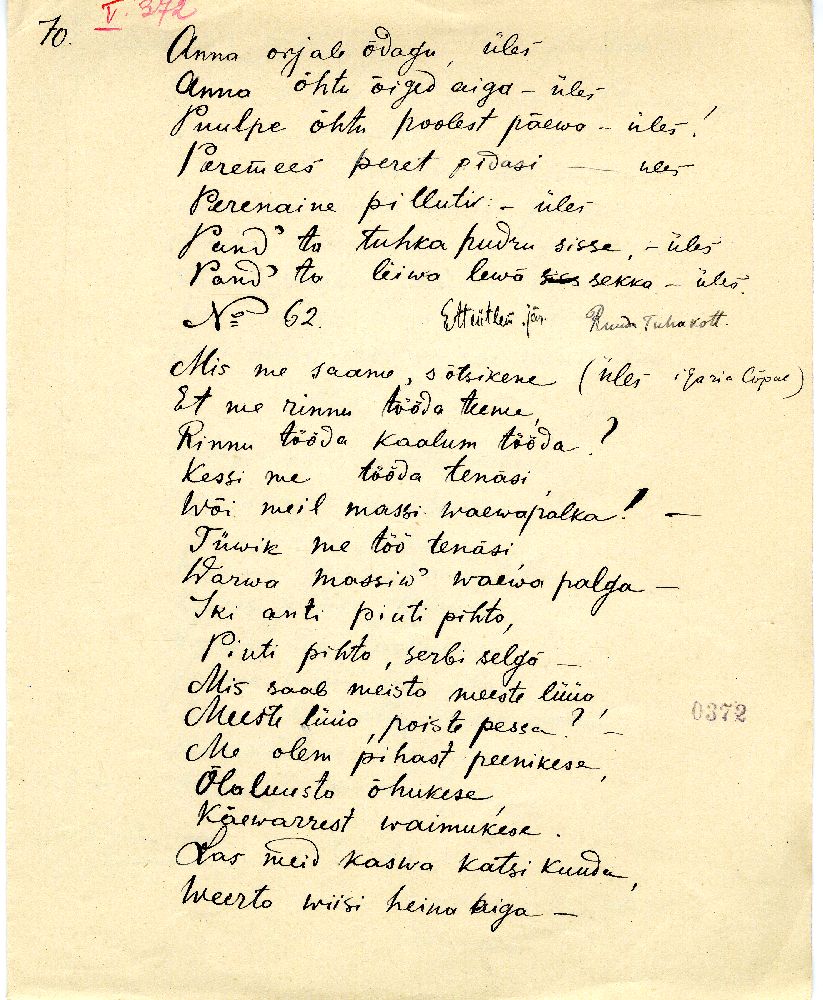 70.
V. 372
Anna orjale õdagu, üles
Anna õhtu õiged aiga – üles
Puulpe õhtu poolest päewa – üles!
Peremees peret pidasi — üles
Perenaine pillutiv: – üles
Pand' ta tuhka pudru sisse, – üles
Pand' ta leiwa lewä sekka – üles.
No 62. Etteütlem. jär. Ruuda Tuhakott.
Mis me saame, sõtsikene (üles iga ria lõpul)
Et me rinnu tööda teeme,
Rinnu tööda kaalum tööda?
Kessi me tööda tenäsi,
Wõi meil massi waewapalka! —
Tüwik me töö tenäsi
Warwa massiw' waewa palga —
Iki anti piuti pihto,
Piuti pihto, serbi selgä —
Mis saab meista meeste lüüa,
Meeste lüüa, poiste pessa? –
Me olem pihast peenikese,
Õlaluusta õhukese,
Käewarrest waimukese.
Las meid kaswa katsi kuuda,
Weerta wiisi heina aiga —
0372